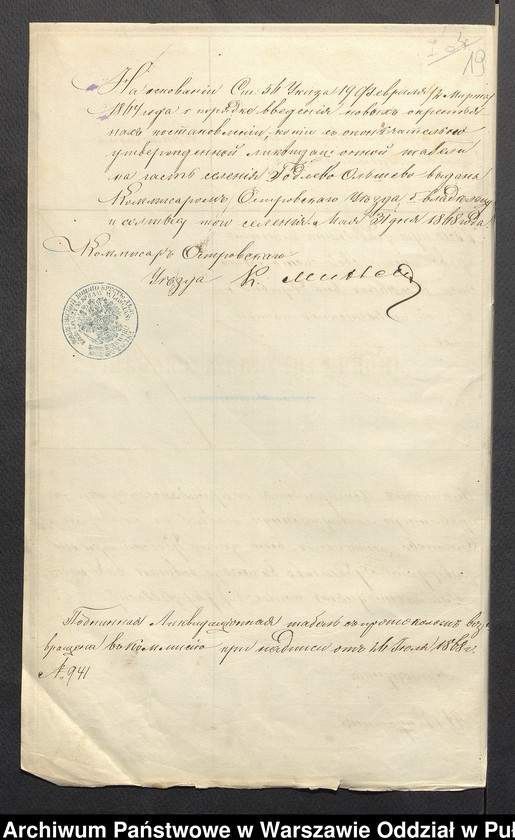 19
На основаніи Ст. 56 Указа 19 Февраля /2 Марта
1864 года о порядкѣ введенія новыхъ крестьян
скихъ постановленій, копія съ окончательно
утвержденной ликвидаціонной табели
на часть селенія Годлево Ольшево выдана
Коммисаромъ Островскаго Уѣзда владѣльцу
и солтысу того селенія. Мая 31 дня 1868 года
Коммисаръ Островскаго
Уѣзда К.
Подлинная Ликвидаціонная табель съ протоколомъ воз
вращена въ Коммисію при надписи отъ 26 Іюля 1868 г.
№ 941
Archiwum Państwowe w Warszawie Oddział w Puł